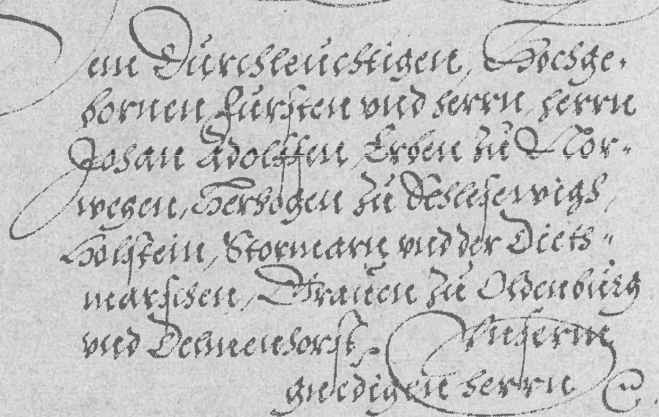 em Durchleuchtigen, Hochge-
bornen Fursten vnd herrn, herrn
Johan Adolffen, Erben zu Nor-
wegen, Hertzogen zu Schleswigh,
Holstein, Stormarn vnd der Diets-
marschen, Grauen zu Oldenburg
vnd Delmenhorst, Vnserm
gnedigen herrn